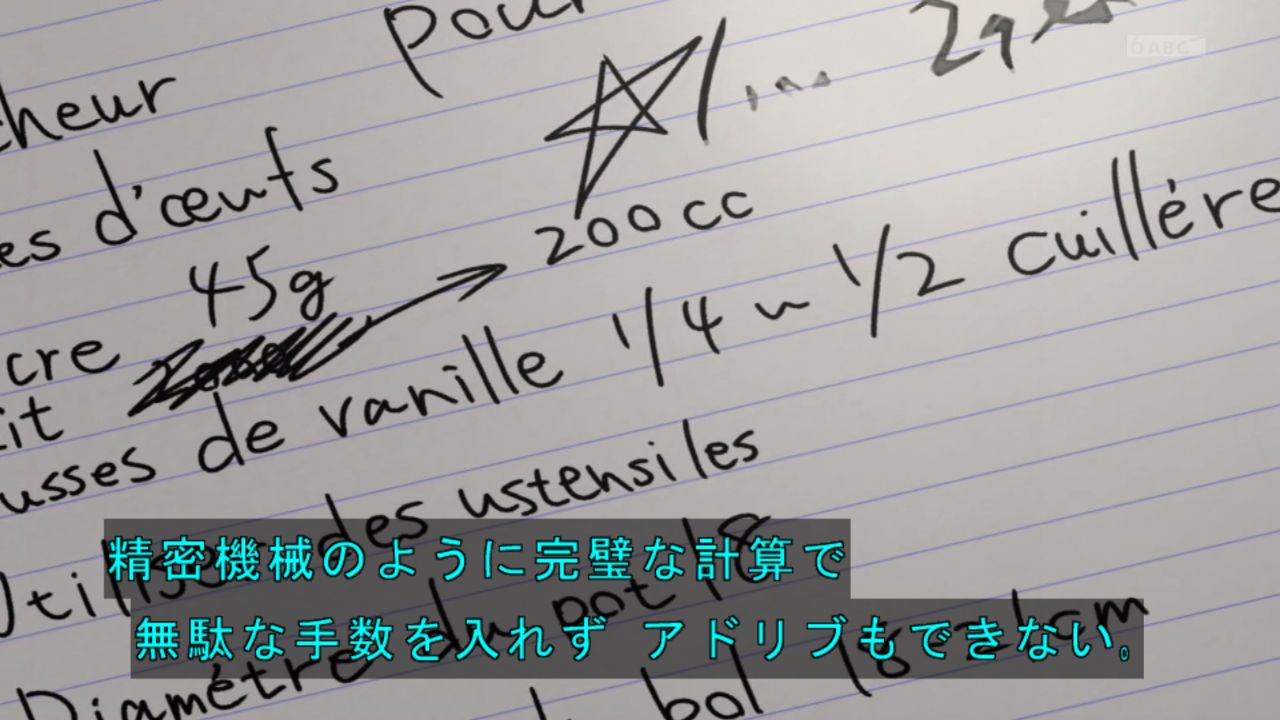 pour
6 ABC
cheur
d'œufs
45g
200cc
cre
it
usses de vanille 1/4 ~ 1/2 cuillére
des ustensiles
精密機械のように完璧な計算で
無駄な手数を入れず アドリブもできない。
Diamétre du pot 18
bol 18